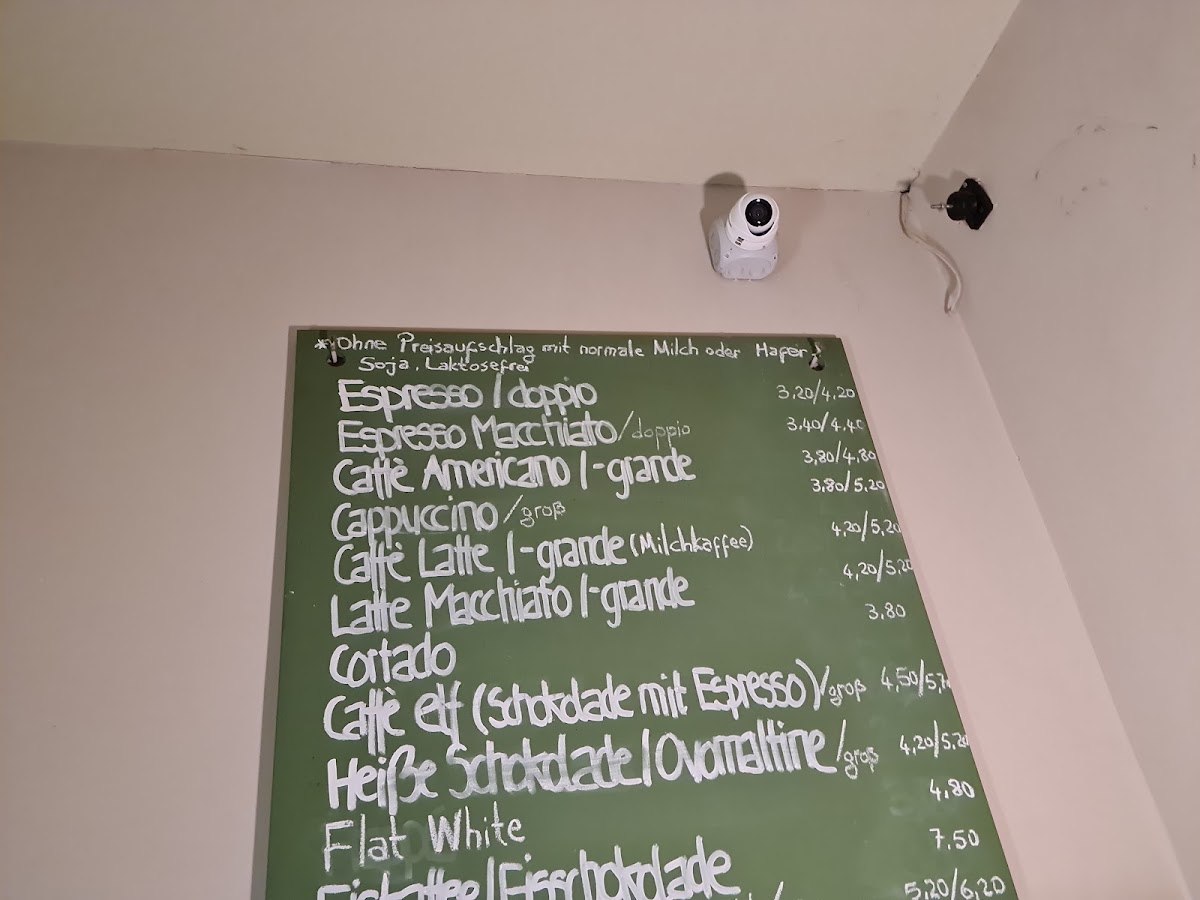 *Ohne Preisaufschlag mit normale Milch oder Hafer
Soja, Laktosefrei
Espresso / doppio 3,20/4,20
Espresso Macchiato/doppio 3,40/4,40
Caffè Americano /-grande 3,80/4,80
Cappuccino /groß 3,80/5,20
Caffè Latte /-grande (Milchkaffee) 4,20/5,20
Latte Macchiato /-grande 4,20/5,20
Cortado 3,80
Caffè elf (Schokolade mit Espresso)/groß
Heiße Schokolade/Ovomaltine/groß 4,20/5,20
Flat White 4,80
Eiskaffee/Eisschokolade 7,50
5,20/6,20